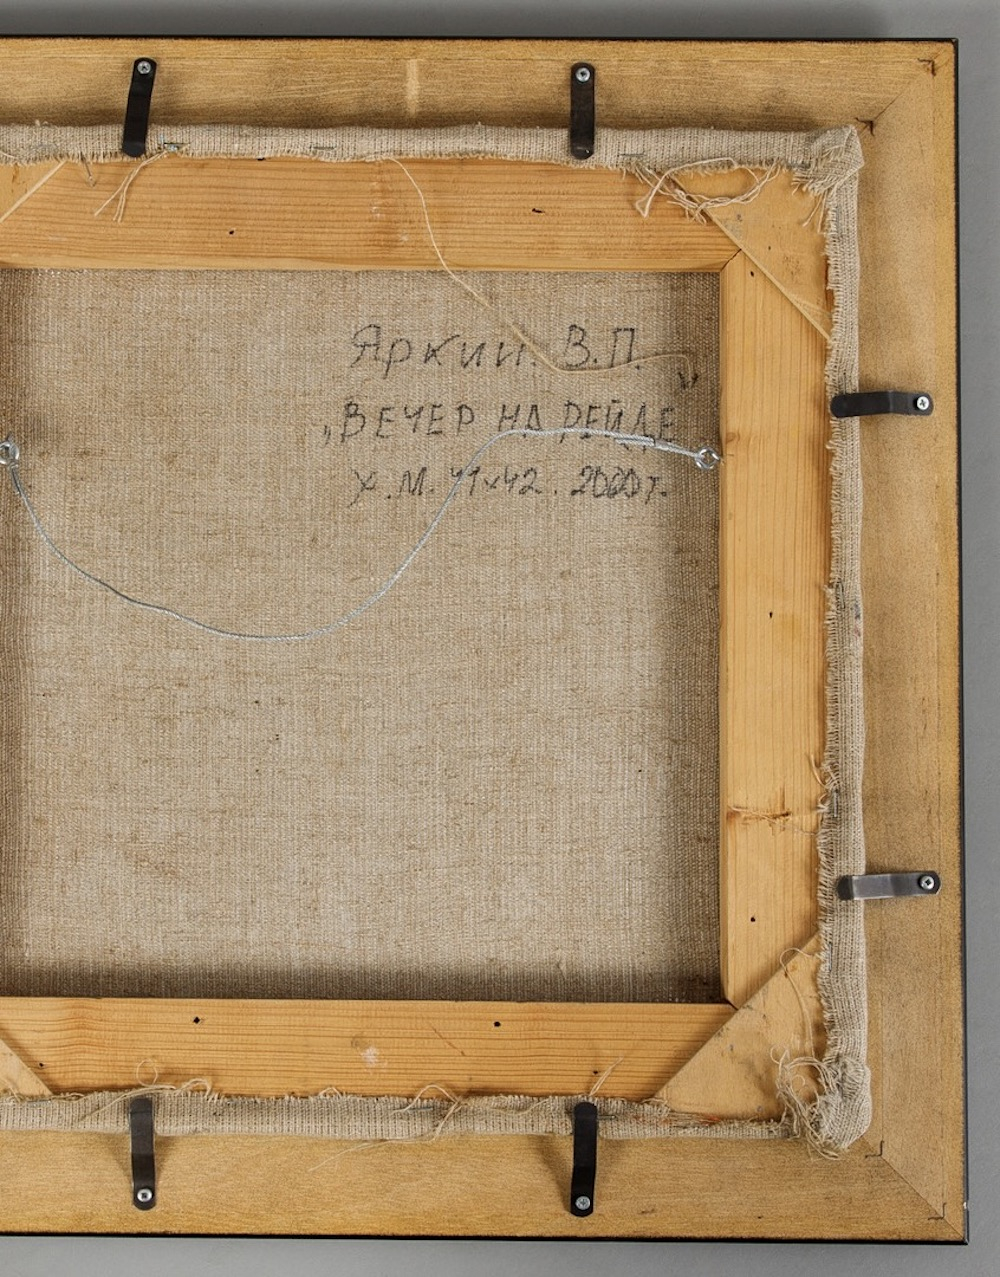 Яркин. В.П.
„ВЕЧЕР НА РЕЙДЕ
Х.М. 41×42. 2000г.